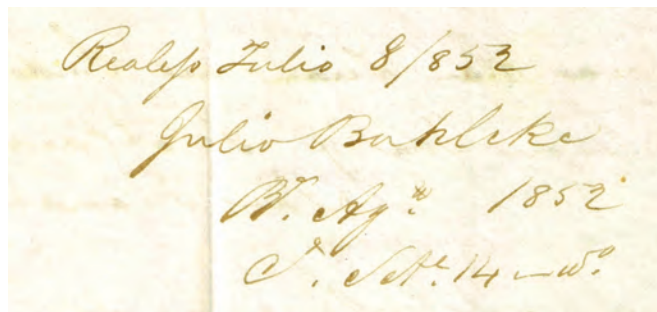 Realejo Julio 8/852
Julio Bahlcke
Rª. Agº. 1852
C. Setе. 14 — dº.